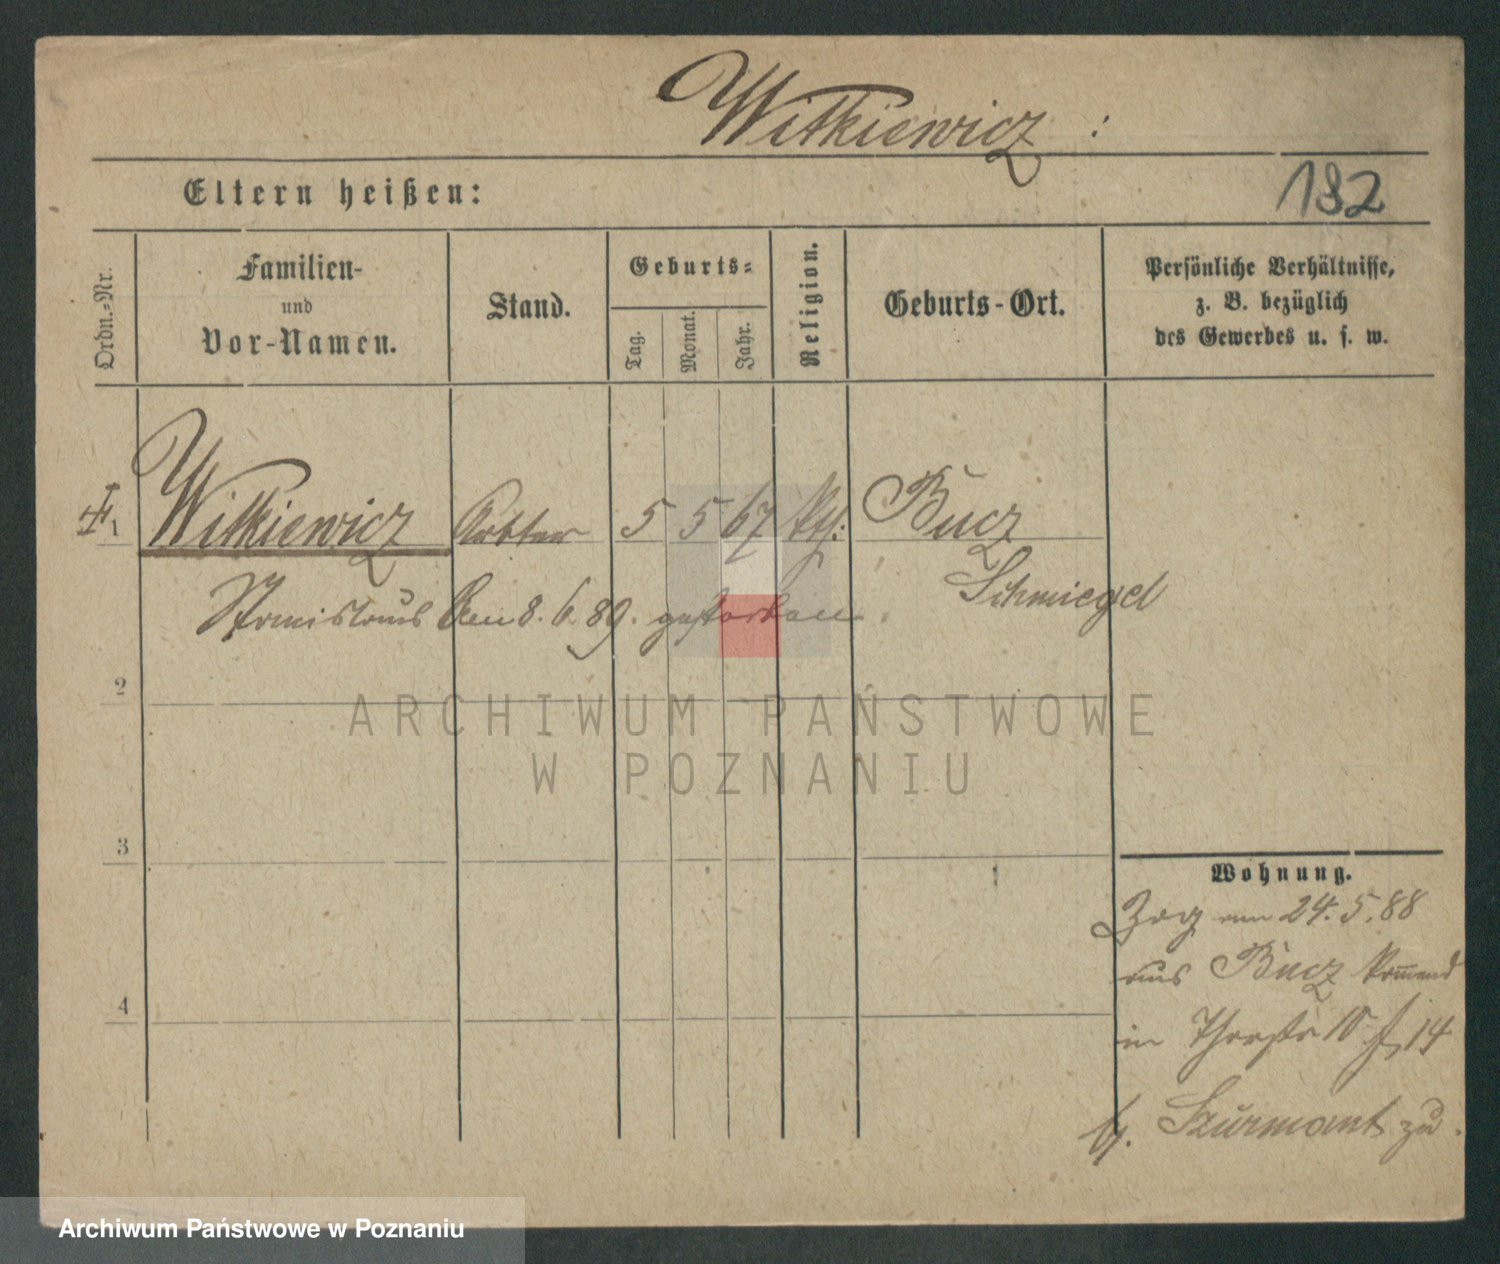 Witkiewicz :
Eltern heißen:
132
Ordn.-Nr.
Familien-
und
Vor-Namen.
Stand.
Geburts-
Tag.
Monat.
Jahr.
Religion.
Geburts-Ort.
Persönliche Verhältnisse,
z. B. bezüglich
des Gewerbes u. s. w.
1 Witkiewicz Arbter 5 5 67 kth. Bucz
Schmiegel
Stanislaus den 8. 6. 89. gestorben.
2
3
4
Wohnung.
Zog am 24. 5. 88
aus Bucz kommend
in Thorstr 10 14
b. Szurmant zu.
ARCHIWUM PAŃSTWOWE
W POZNANIU
Archiwum Państwowe w Poznaniu